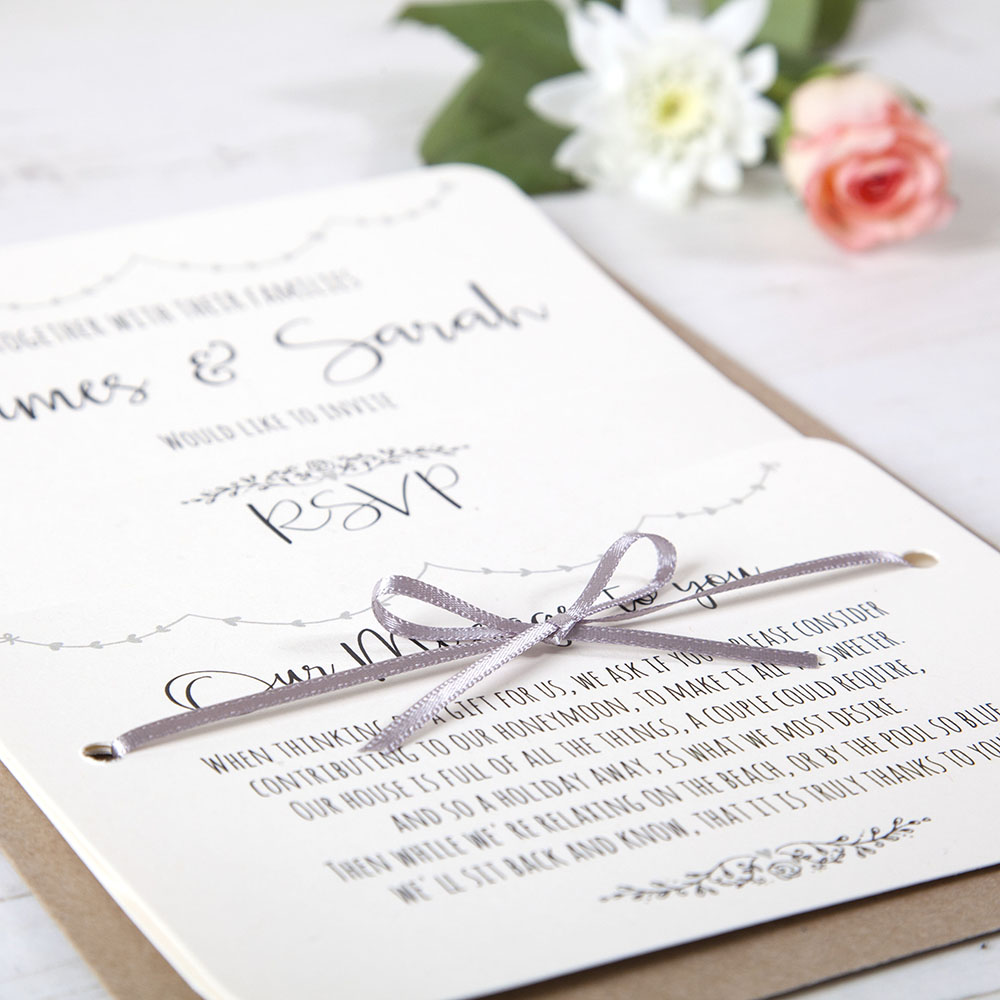 TOGETHER WITH THEIR FAMILIES
ames & Sarah
WOULD LIKE TO INVITE
RSVP
Our M to you
WHEN THINKING A GIFT FOR US, WE ASK IF YOU PLEASE CONSIDER
CONTRIBUTING TO OUR HONEYMOON, TO MAKE IT ALL SWEETER.
OUR HOUSE IS FULL OF ALL THE THINGS, A COUPLE COULD REQUIRE,
AND SO A HOLIDAY AWAY, IS WHAT WE MOST DESIRE.
THEN WHILE WE'RE RELAXING ON THE BEACH, OR BY THE POOL SO BLUE
WE'LL SIT BACK AND KNOW, THAT IT IS TRULY THANKS TO YOU